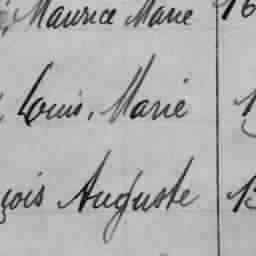 , Maurice Marie 16
, Louis, Marie 1
çois Auguste 15